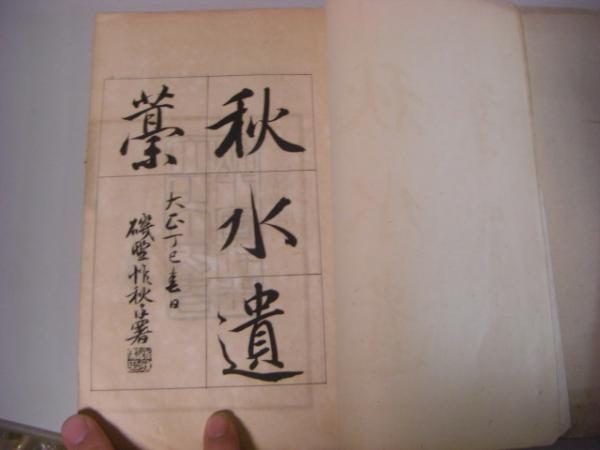 秋水遺
藁
大正丁巳春日
磯野惟秋手署